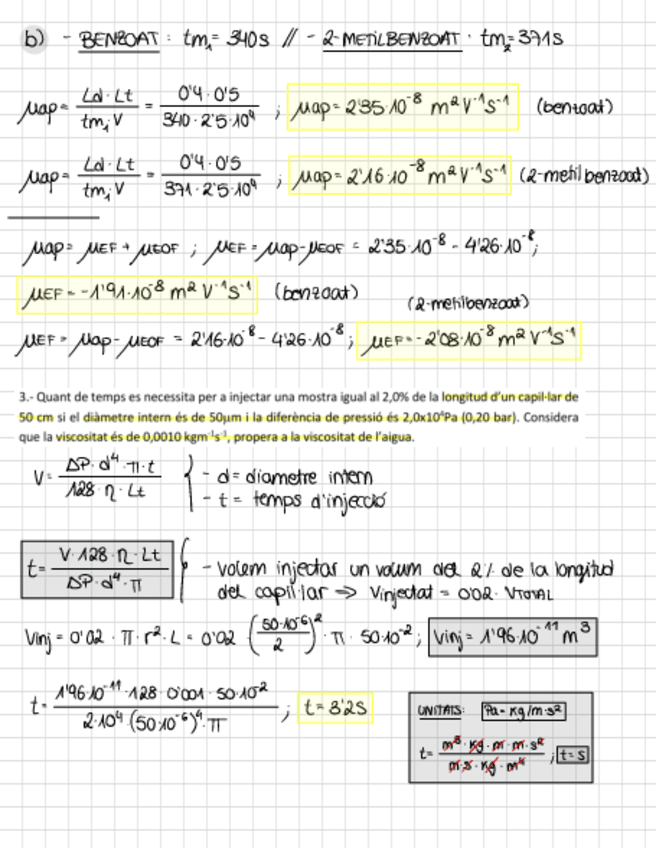 b) - BENZOAT: tm₁= 340s // - 2-METILBENZOAT· tm₂= 371s
μap= Ld·Lt / tm₁·V = 0'4·0'5 / 340·2'5·10⁴ ; μap= 2'35·10⁻⁸ m² V⁻¹ s⁻¹ (benzoat)
μap= Ld·Lt / tm₁·V = 0'4·0'5 / 371·2'5·10⁴ ; μap= 2'16·10⁻⁸ m² V⁻¹ s⁻¹ (2-metilbenzoat)
μap= μEF + μEOF ; μEF = μap-μEOF = 2'35·10⁻⁸ - 4'26·10⁻⁸;
μEF = -1'91·10⁻⁸ m² V⁻¹ s⁻¹ (benzoat)
(2-metilbenzoat)
μEF = μap - μEOF = 2'16·10⁻⁸ - 4'26·10⁻⁸ ; μEF= -2'08·10⁻⁸ m² V⁻¹ s⁻¹
3.- Quant de temps es necessita per a injectar una mostra igual al 2,0% de la longitud d'un capil·lar de
50 cm si el diàmetre intern és de 50μm i la diferència de pressió és 2,0x10⁴Pa (0,20 bar). Considera
que la viscositat és de 0,0010 kgm⁻¹s⁻¹, propera a la viscositat de l'aigua.
V= ΔP·d⁴·π·t / 128·η·Lt { - d= diametre intern
- t= temps d'injecció
t= V·128·η·Lt / ΔP·d⁴·π { - volem injectar un volum del 2% de la longitud
del capil·lar ⇒ Vinjectat = 0'02·VTOTAL
Vinj = 0'02 · π·r²·L = 0'02 (50·10⁻⁶ / 2)² · π · 50·10⁻² ; Vinj= 1'96·10⁻¹¹ m³
t= 1'96·10⁻¹¹·128·0'001·50·10⁻² / 2·10⁴·(50·10⁻⁶)⁴·π ; t= 3'2s
UNITATS: Pa= kg/m·s²
t= m³·kg·m·m·s² / m·s·kg·m⁴ ; t=s